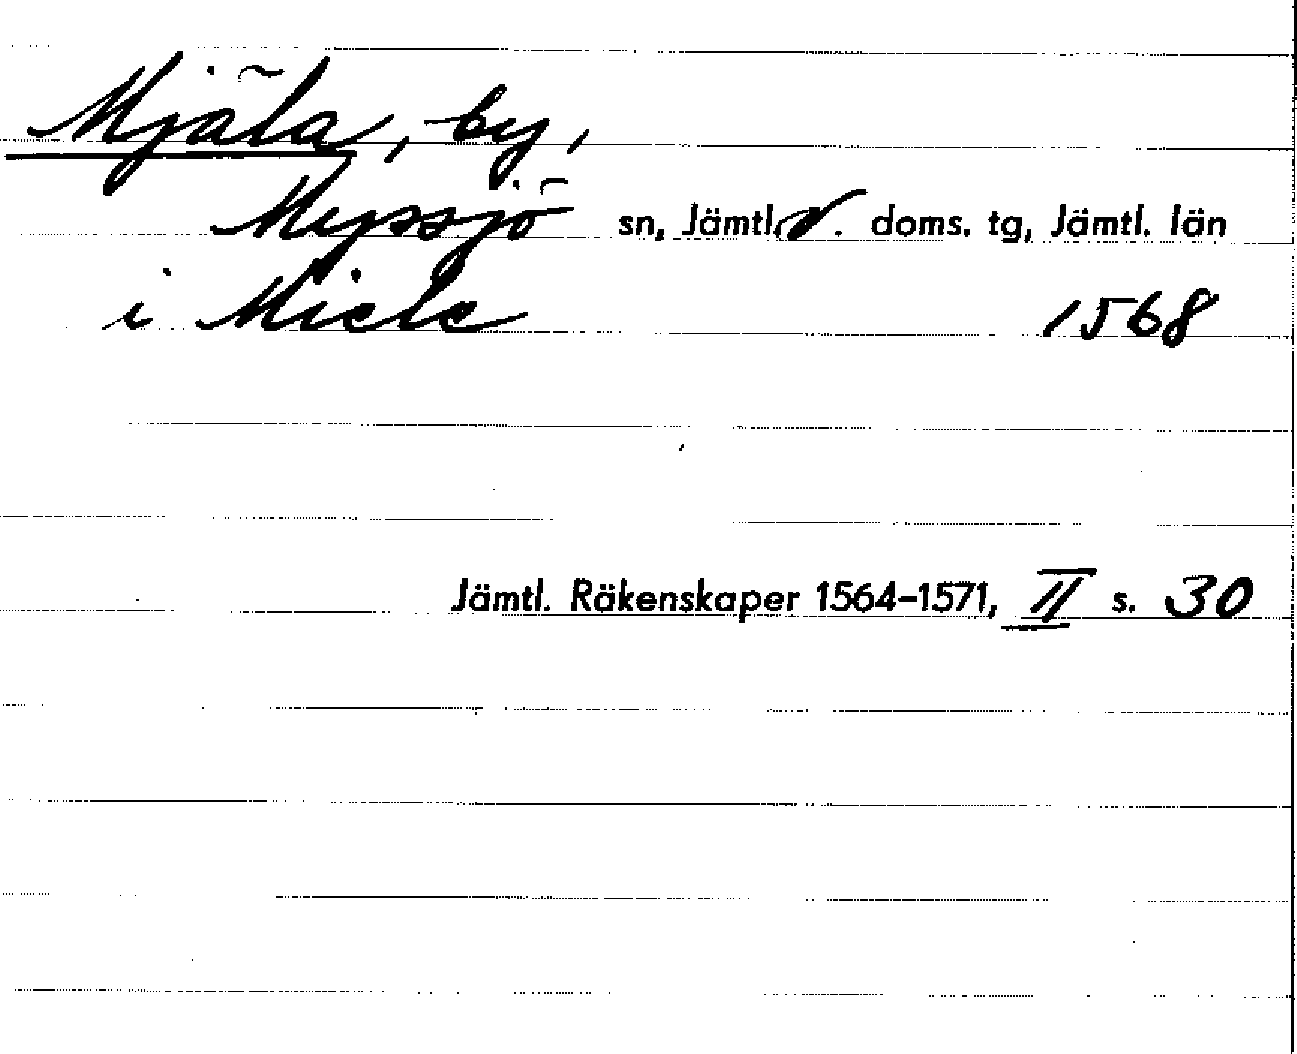 Mjäla, by,
Myssjö sn, Jämtl. v. doms. tg, Jämtl. län
i Miele 1568
Jämtl. Räkenskaper 1564-1571, II s. 30